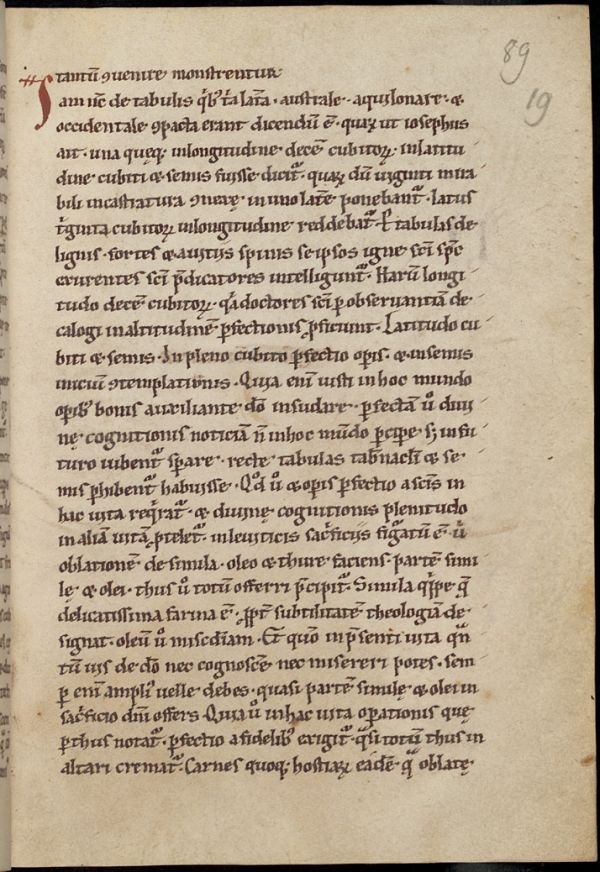 89
19
tantũ ꝯuenire monstrentur
Iam nc̄ de tabulis q̇bꝰ t̃ra lat̃a · australe · aquilonare · &
occidentale ꝯpacta erant dicendũ ē · quaꝝ ut iosephus
ait · una queq; in longitudine decē cubitoꝝ · in latitu
dine cubiti & semis fuisse dicit᷑ · quaꝝ dũ uiginti mira
bili incastratura ꝯnexę in uno lat̃e ponebant᷑ · latus
t̃ginta cubitoꝝ in longitudine reddebat᷑ · P̲ tabulas de
lignis · fortes & spinis se ipsos igne sc̄i sp̄c
exurentes sc̄i p̄dicatores intelligunt᷑ · Harũ longi
tudo decē cubitoꝝ · q̇a doctores sc̄i ꝑ obseruantiā de
calogi in altitudinē ꝑfectionis ꝓficiunt · Latitudo cu
biti & semis · In pleno cubito ꝑfectio opis · & in semis
iniciũ ꝯtemplationis · Quia eni iusti in hoc mundo
opibꝰ bonis auxiliante dō insudare · ꝑfectā u̇ diui
nę cognitionis noticiā n̄ in hoc mũdo ꝑcipe · s; in fu
turo uibent᷑ spare · recte tabulas tab̄nacl̄i & se
mis ꝑhibent᷑ habuisse · Qd̄ u̇ & opis ꝑfectio a sc̄is in
hac uita req̇rat᷑ · & diuinę cognitionis plenitudo
in aliā uitā ꝓtelet᷑ · in leuiticis sac̃ficiis figat᷑ ē · u̇
oblationē de simila · oleo & thure faciens · partē simi
lę & olei · thus u̇ totũ offerri p̄cipit᷑ · Simila q̇ppe q̄
delicatissima farina ē · ꝓpt̃ subtilitatē theologiā de
signat · oleũ u̇ mis̄cdiam · Et quō in p̄senti uita q̄n
tũ uis de dō nec cognosc̄e nec misereri potes · sem
ꝑ eni amplꝰ uelle debes · quasi partē similę & olei in
sac̃ficio dn̄i offers · Quia u̇ in hac uita opationis quę
ꝑ thus notat᷑ · ꝑfectio a fidelibꝰ exigit᷑ · q̄si totũ thus in
altari cremat᷑ · Carnes quoq; hostiaꝝ eadē q̄ oblatę